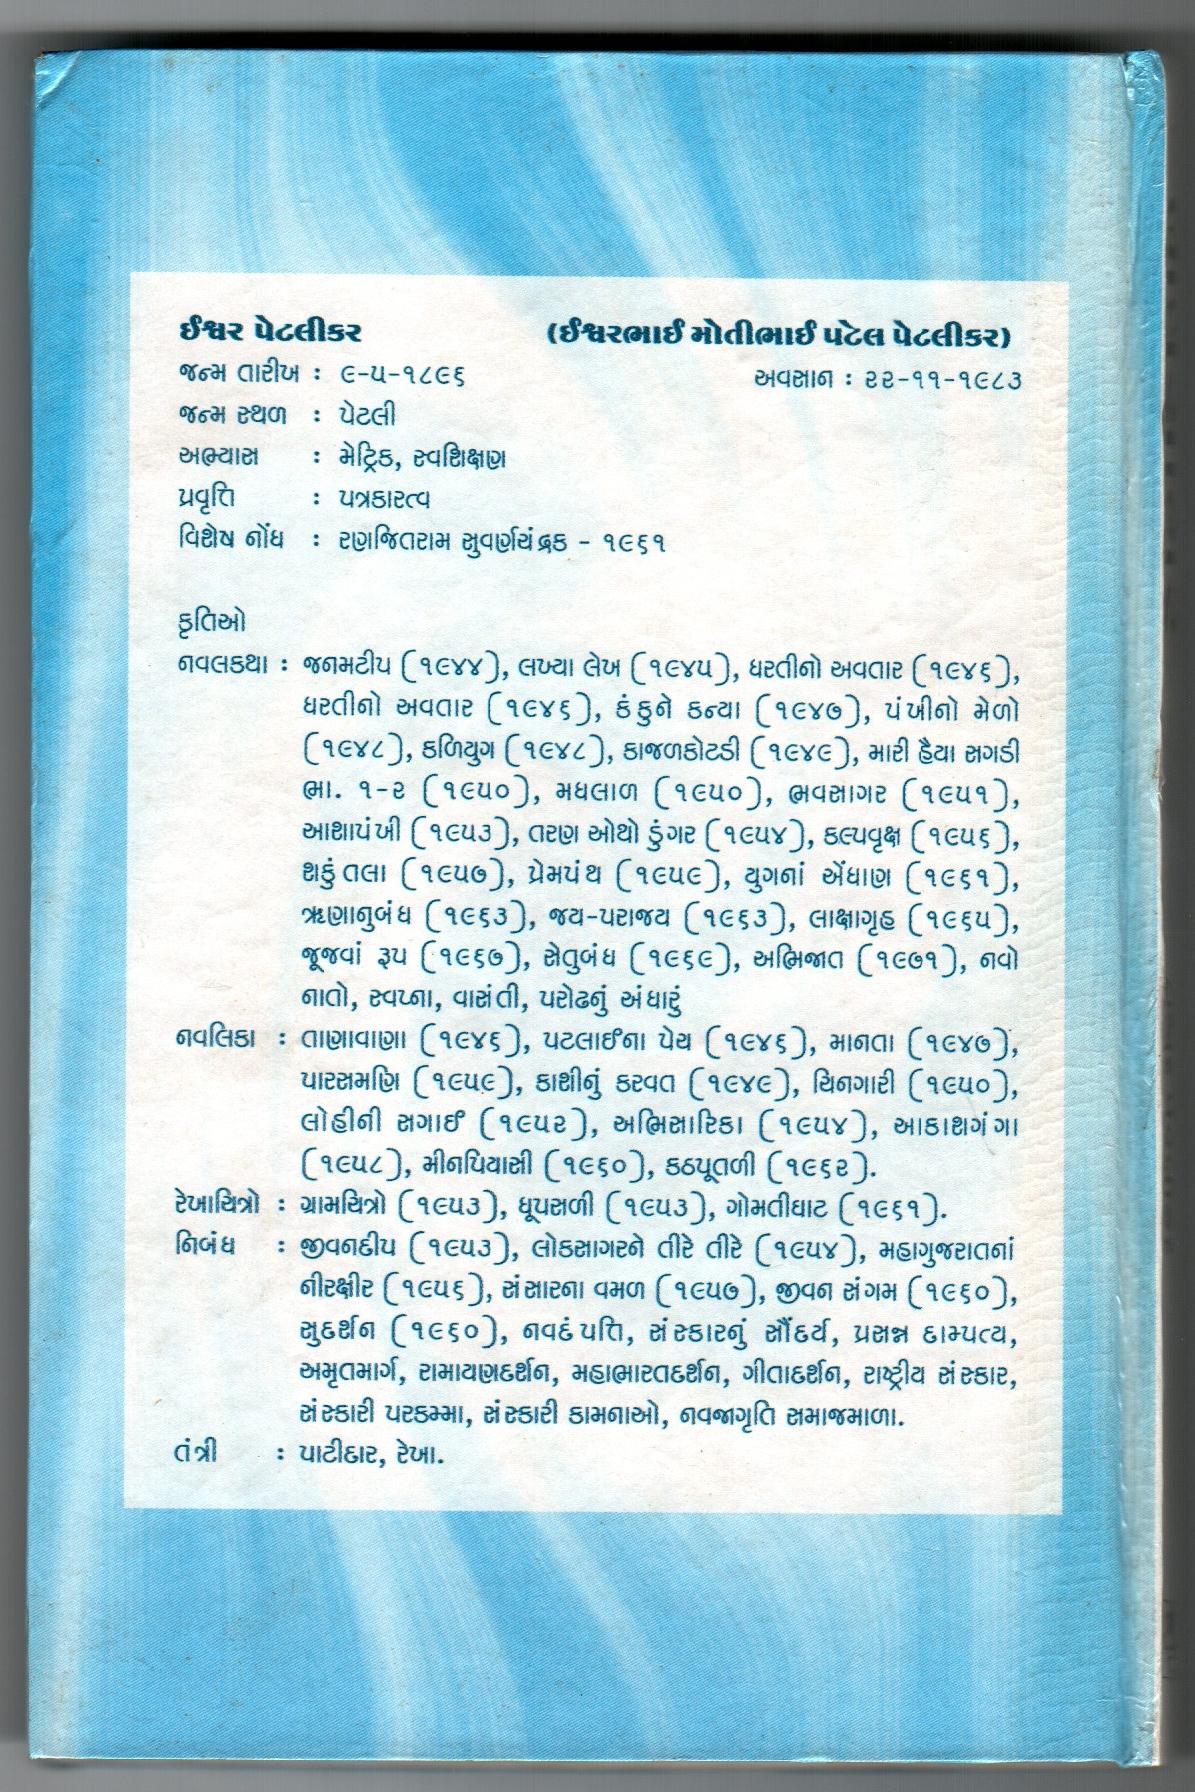 ઈશ્વર પેટલીકર (ઈશ્વરભાઈ મોતીભાઈ પટેલ પેટલીકર)
જન્મ તારીખ : ૯-૫-૧૮૯૬ અવસાન : ૨૨-૧૧-૧૯૮૩
જન્મ સ્થળ : પેટલી
અભ્યાસ : મેટ્રિક, સ્વશિક્ષણ
પ્રવૃત્તિ : પત્રકારત્વ
વિશેષ નોંધ : રણજિતરામ સુવર્ણચંદ્રક - ૧૯૬૧
કૃતિઓ
નવલકથા : જનમટીપ (૧૯૪૪), લખ્યા લેખ (૧૯૪૫), ધરતીનો અવતાર (૧૯૪૬),
ધરતીનો અવતાર (૧૯૪૬), કંકુને કન્યા (૧૯૪૭), પંખીનો મેળો
(૧૯૪૮), કળિયુગ (૧૯૪૮), કાજળકોટડી (૧૯૪૯), મારી હૈયા સગડી
ભા. ૧-૨ (૧૯૫૦), મધલાળ (૧૯૫૦), ભવસાગર (૧૯૫૧),
આશાપંખી (૧૯૫૩), તરણ ઓથો ડુંગર (૧૯૫૪), કલ્પવૃક્ષ (૧૯૫૬),
શકુંતલા (૧૯૫૭), પ્રેમપંથ (૧૯૫૯), યુગનાં એંધાણ (૧૯૬૧),
ઋણાનુબંધ (૧૯૬૩), જય-પરાજય (૧૯૬૩), લાક્ષાગૃહ (૧૯૬૫),
જૂજવાં રૂપ (૧૯૬૭), સેતુબંધ (૧૯૬૯), અભિજાત (૧૯૭૧), નવો
નાતો, સ્વપ્ના, વાસંતી, પરોઢનું અંધારું
નવલિકા : તાણાવાણા (૧૯૪૬), પટલાઈના પેચ (૧૯૪૬), માનતા (૧૯૪૭),
પારસમણિ (૧૯૫૯), કાશીનું કરવત (૧૯૪૯), ચિનગારી (૧૯૫૦),
લોહીની સગાઈ (૧૯૫૨), અભિસારિકા (૧૯૫૪), આકાશગંગા
(૧૯૫૮), મીનપિયાસી (૧૯૬૦), કઠપૂતળી (૧૯૬૨).
રેખાચિત્રો : ગ્રામચિત્રો (૧૯૫૩), ધૂપસળી (૧૯૫૩), ગોમતીઘાટ (૧૯૬૧).
નિબંધ : જીવનદીપ (૧૯૫૩), લોકસાગરને તીરે તીરે (૧૯૫૪), મહાગુજરાતનાં
નીરક્ષીર (૧૯૫૬), સંસારના વમળ (૧૯૫૭), જીવન સંગમ (૧૯૬૦),
સુદર્શન (૧૯૬૦), નવદંપત્તિ, સંસ્કારનું સૌંદર્ય, પ્રસન્ન દામ્પત્ય,
અમૃતમાર્ગ, રામાયણદર્શન, મહાભારતદર્શન, ગીતાદર્શન, રાષ્ટ્રીય સંસ્કાર,
સંસ્કારી પરકમ્મા, સંસ્કારી કામનાઓ, નવજાગૃતિ સમાજમાળા.
તંત્રી : પાટીદાર, રેખા.